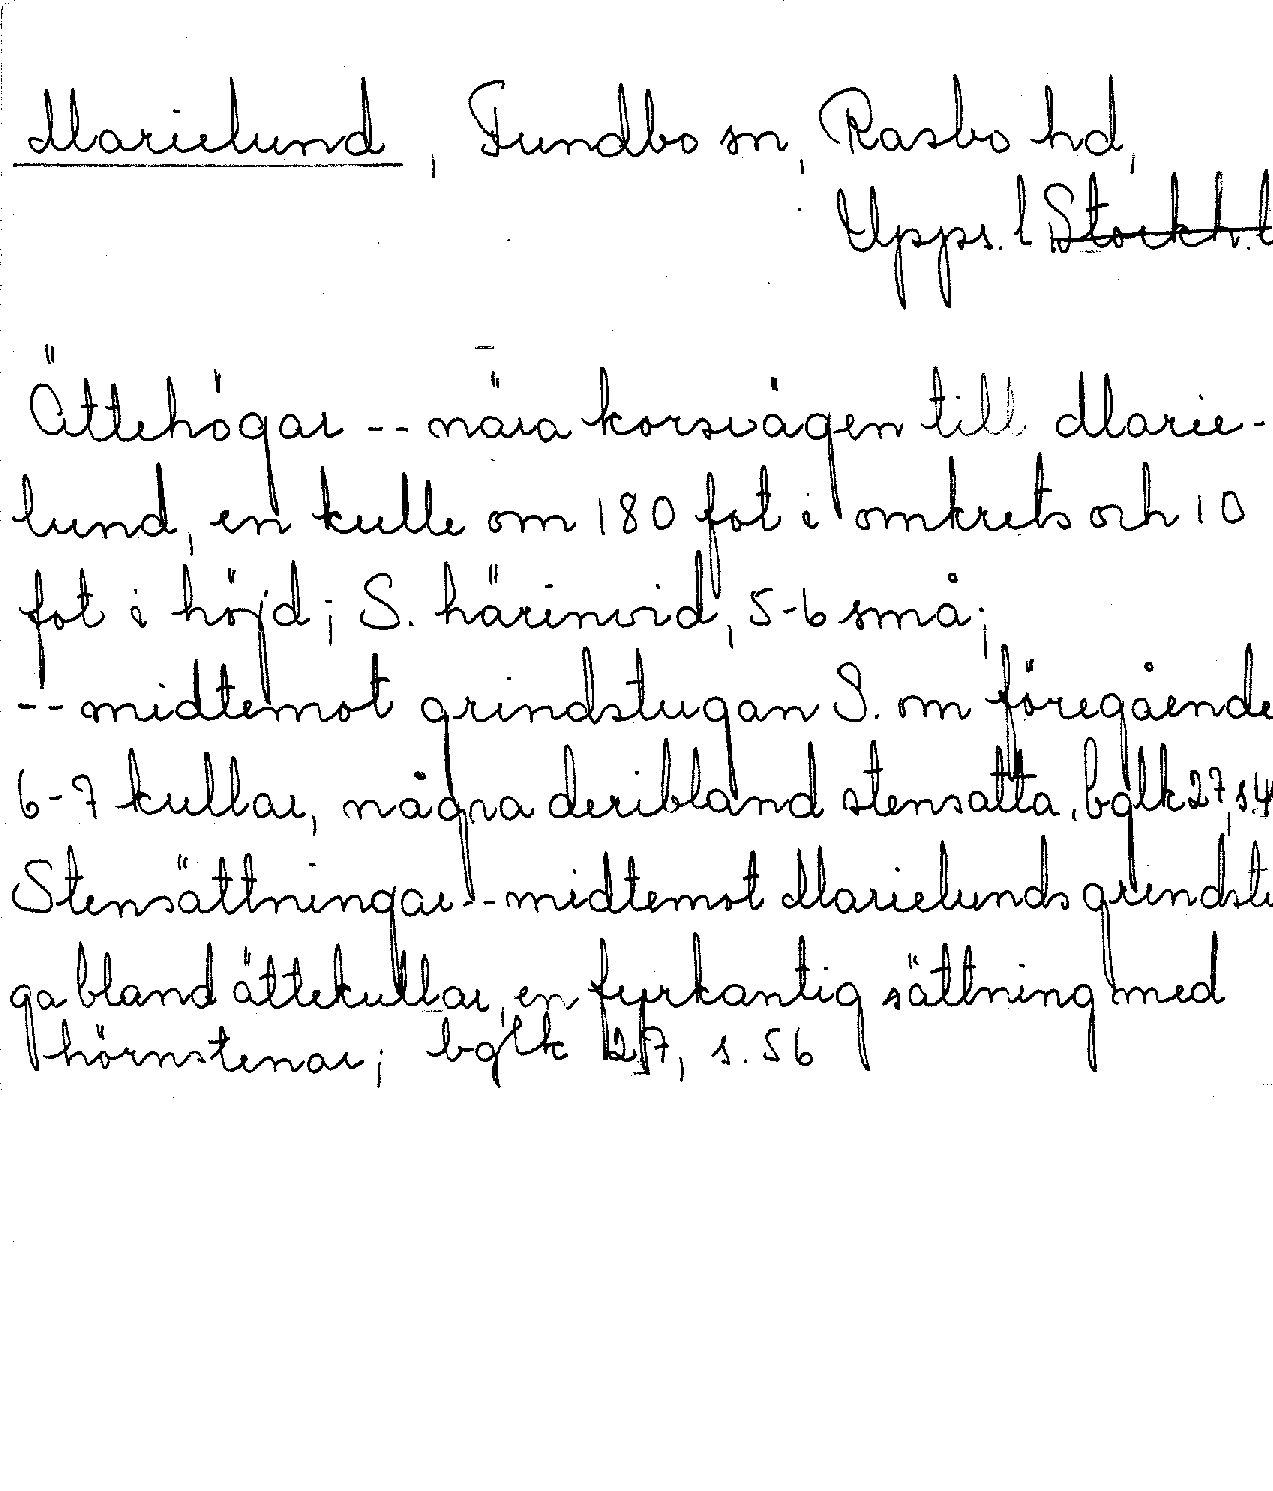 Marielund, Fundbo sn, Rasbo hd,
Upps. l Stockh. l
Ättehögar -- nära korsvägen till Marie-
lund, en kulle om 180 fot i omkrets och 10
fot i höjd; S. härinvid, 5-6 små;
-- midtemot grindstugan S. om föregående
6-7 kullar, några deribland stensatta, bglk 27, s.4
Stensättningar -- midtemot Marielunds grindstu
ga bland ättekullar, en fyrkantig sättning med
hörnstenar; bglk 27, s. 56